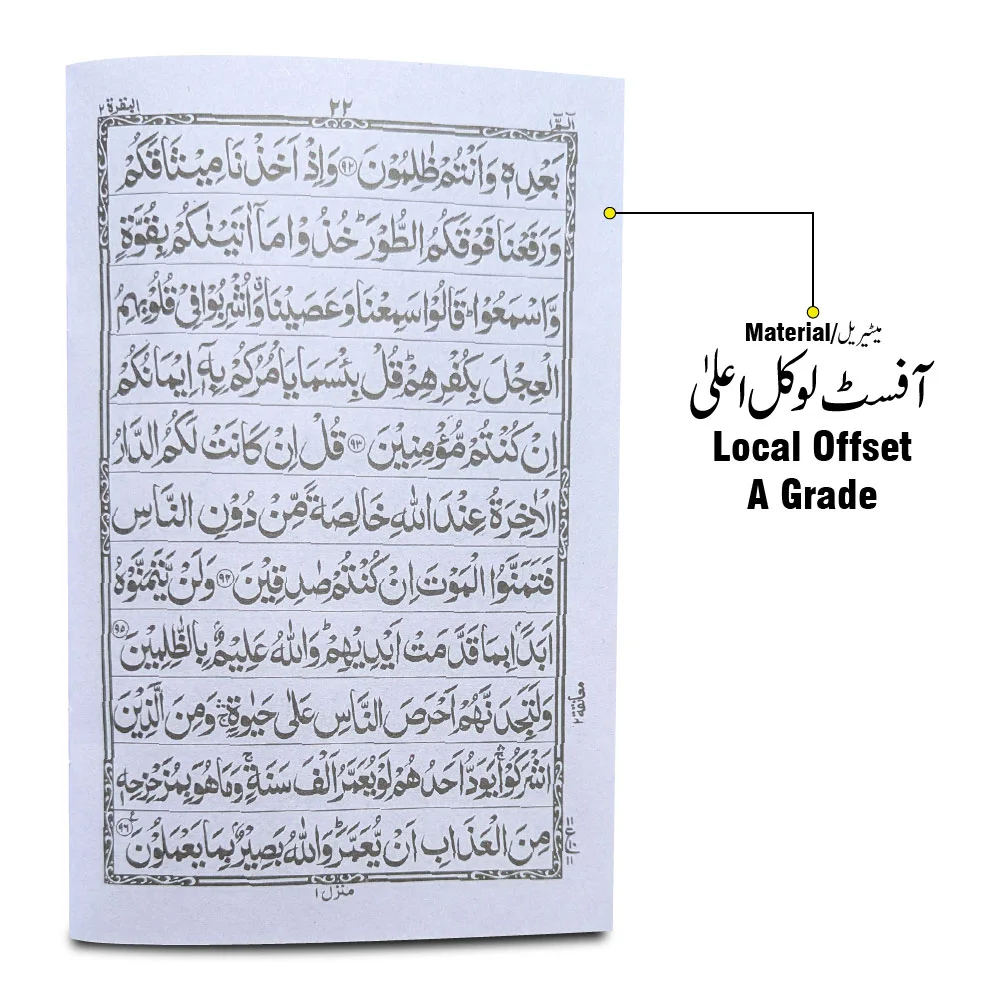 الٓمّٓ ١
٢٢
البقرة ٢
بَعْدِهٖ وَاَنْتُمْ ظٰلِمُوْنَ ﴿٩٢﴾ وَاِذْ اَخَذْنَا مِيْثَاقَكُمْ
وَرَفَعْنَا فَوْقَكُمُ الطُّوْرَ ؕ خُذُوْا مَاۤ اٰتَيْنٰكُمْ بِقُوَّةٍ
وَّاسْمَعُوْا ؕ قَالُوْا سَمِعْنَا وَعَصَيْنَا ۗ وَاُشْرِبُوْا فِيْ قُلُوْبِهِمُ
الْعِجْلَ بِكُفْرِهِمْ ؕ قُلْ بِئْسَمَا يَاْمُرُكُمْ بِهٖۤ اِيْمَانُكُمْ
اِنْ كُنْتُمْ مُّؤْمِنِيْنَ ﴿٩٣﴾ قُلْ اِنْ كَانَتْ لَكُمُ الدَّارُ
الْاٰخِرَةُ عِنْدَ اللّٰهِ خَالِصَةً مِّنْ دُوْنِ النَّاسِ
فَتَمَنَّوُا الْمَوْتَ اِنْ كُنْتُمْ صٰدِقِيْنَ ﴿٩٤﴾ وَلَنْ يَّتَمَنَّوْهُ
اَبَدًاۢ بِمَا قَدَّمَتْ اَيْدِيْهِمْ ؕ وَاللّٰهُ عَلِيْمٌۢ بِالظّٰلِمِيْنَ ﴿٩٥﴾
وَلَتَجِدَنَّهُمْ اَحْرَصَ النَّاسِ عَلٰى حَيٰوةٍ ۛۚ وَمِنَ الَّذِيْنَ
اَشْرَكُوْا ۛۚ يَوَدُّ اَحَدُهُمْ لَوْ يُعَمَّرُ اَلْفَ سَنَةٍ ۚ وَمَا هُوَ بِمُزَحْزِحِهٖ
مِنَ الْعَذَابِ اَنْ يُّعَمَّرَ ؕ وَاللّٰهُ بَصِيْرٌۢ بِمَا يَعْمَلُوْنَ ﴿٩٦﴾
معانقة ٢
منزل ١
Material/میٹیریل
آفسٹ لوکل اعلیٰ
Local Offset
A Grade